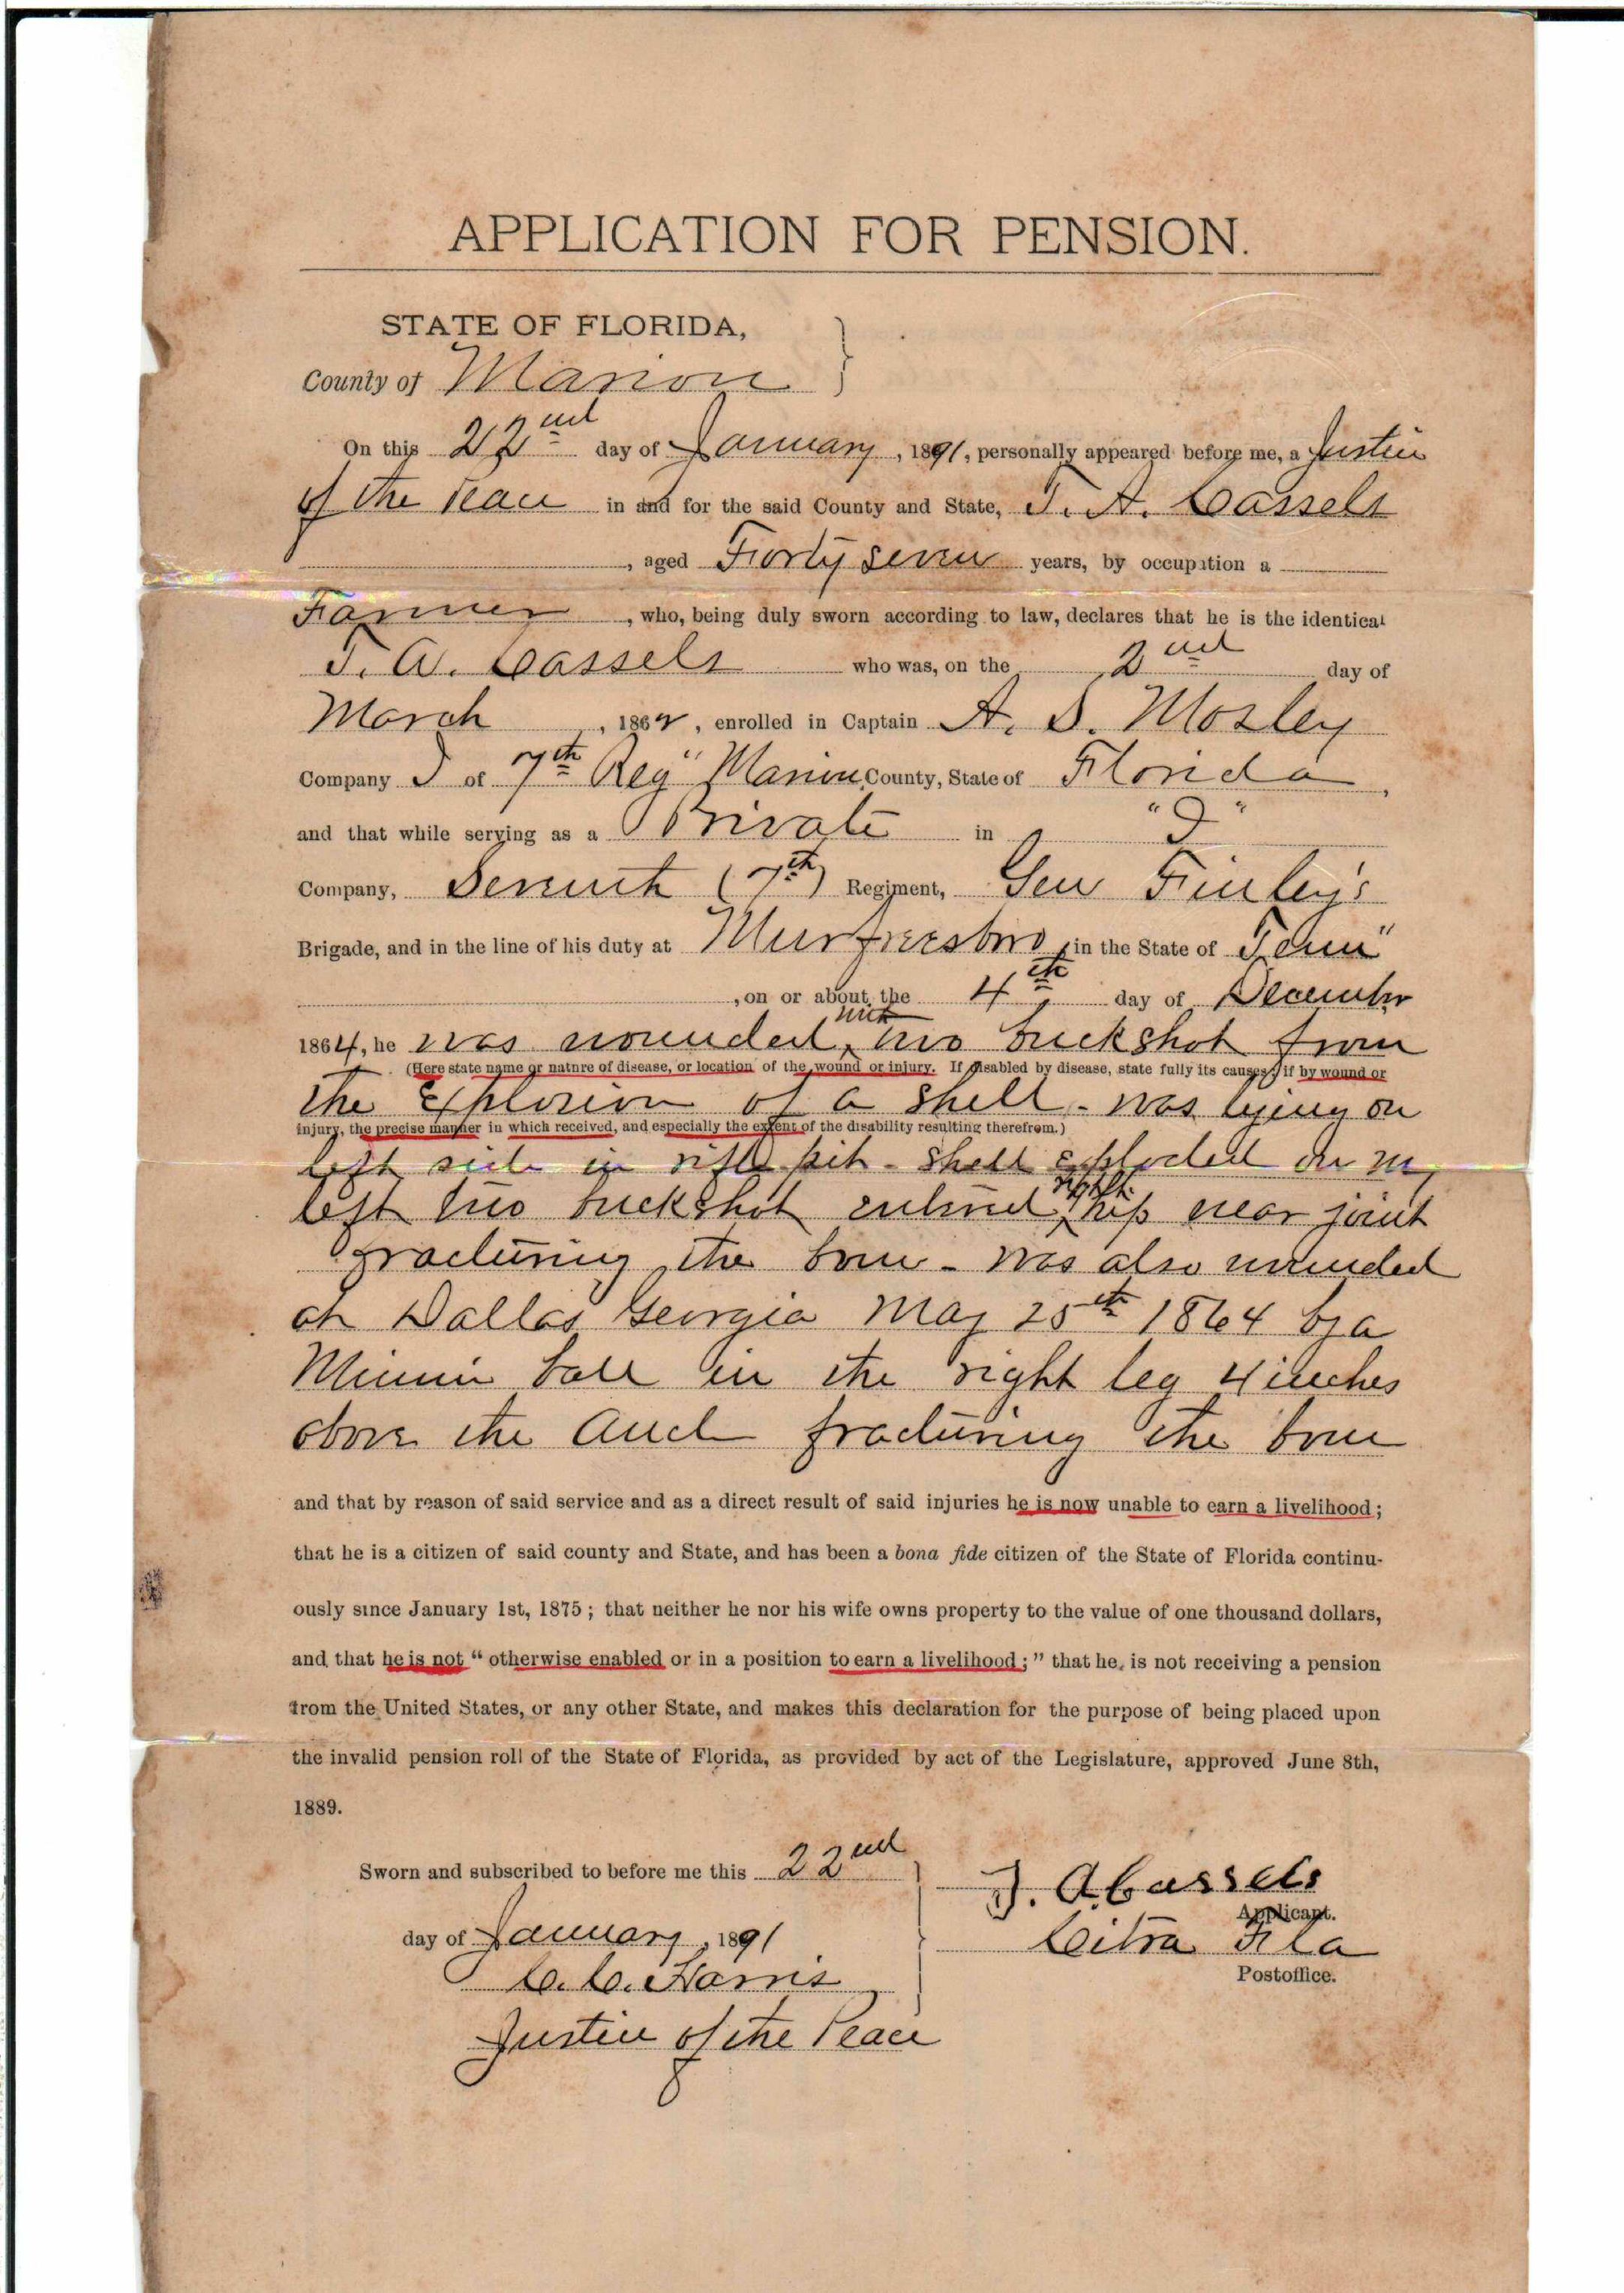 APPLICATION FOR PENSION.
STATE OF FLORIDA,
County of Marion
On this 22nd day of January, 1891, personally appeared before me, a Justice
of the Peace in and for the said County and State, T. A. Cassels
, aged Forty seven years, by occupation a
Farmer, who, being duly sworn according to law, declares that he is the identical
T. A. Cassels who was, on the 2nd day of
March, 1862, enrolled in Captain A. S. Mosley
Company I of 7th Reg" Marion County, State of Florida,
and that while serving as a Private in "I"
Company, Seventh (7th) Regiment, Gen Finley's
Brigade, and in the line of his duty at Murfreesboro, in the State of Tenn"
, on or about the 4th day of December
with
1864, he was wounded two buckshot from
(Here state name or nature of disease, or location of the wound or injury. If disabled by disease, state fully its causes; if by wound or
the Explosion of a Shell - was lying on
injury, the precise manner in which received, and especially the extent of the disability resulting therefrom.)
left side in rifle pit - Shell Exploded on my
right
left two buckshot entered hip near joint
fracturing the bone - was also wounded
at Dallas Georgia May 25th 1864 by a
Minnie ball in the right leg 4 inches
above the fracturing the bone
and that by reason of said service and as a direct result of said injuries he is now unable to earn a livelihood;
that he is a citizen of said county and State, and has been a bona fide citizen of the State of Florida continu-
ously since January 1st, 1875; that neither he nor his wife owns property to the value of one thousand dollars,
and that he is not "otherwise enabled or in a position to earn a livelihood;" that he is not receiving a pension
from the United States, or any other State, and makes this declaration for the purpose of being placed upon
the invalid pension roll of the State of Florida, as provided by act of the Legislature, approved June 8th,
1889.
Sworn and subscribed to before me this 22nd
day of January, 1891
C. C. Harris
Justice of the Peace
T. A. Cassels
Applicant.
Citra Fla
Postoffice.